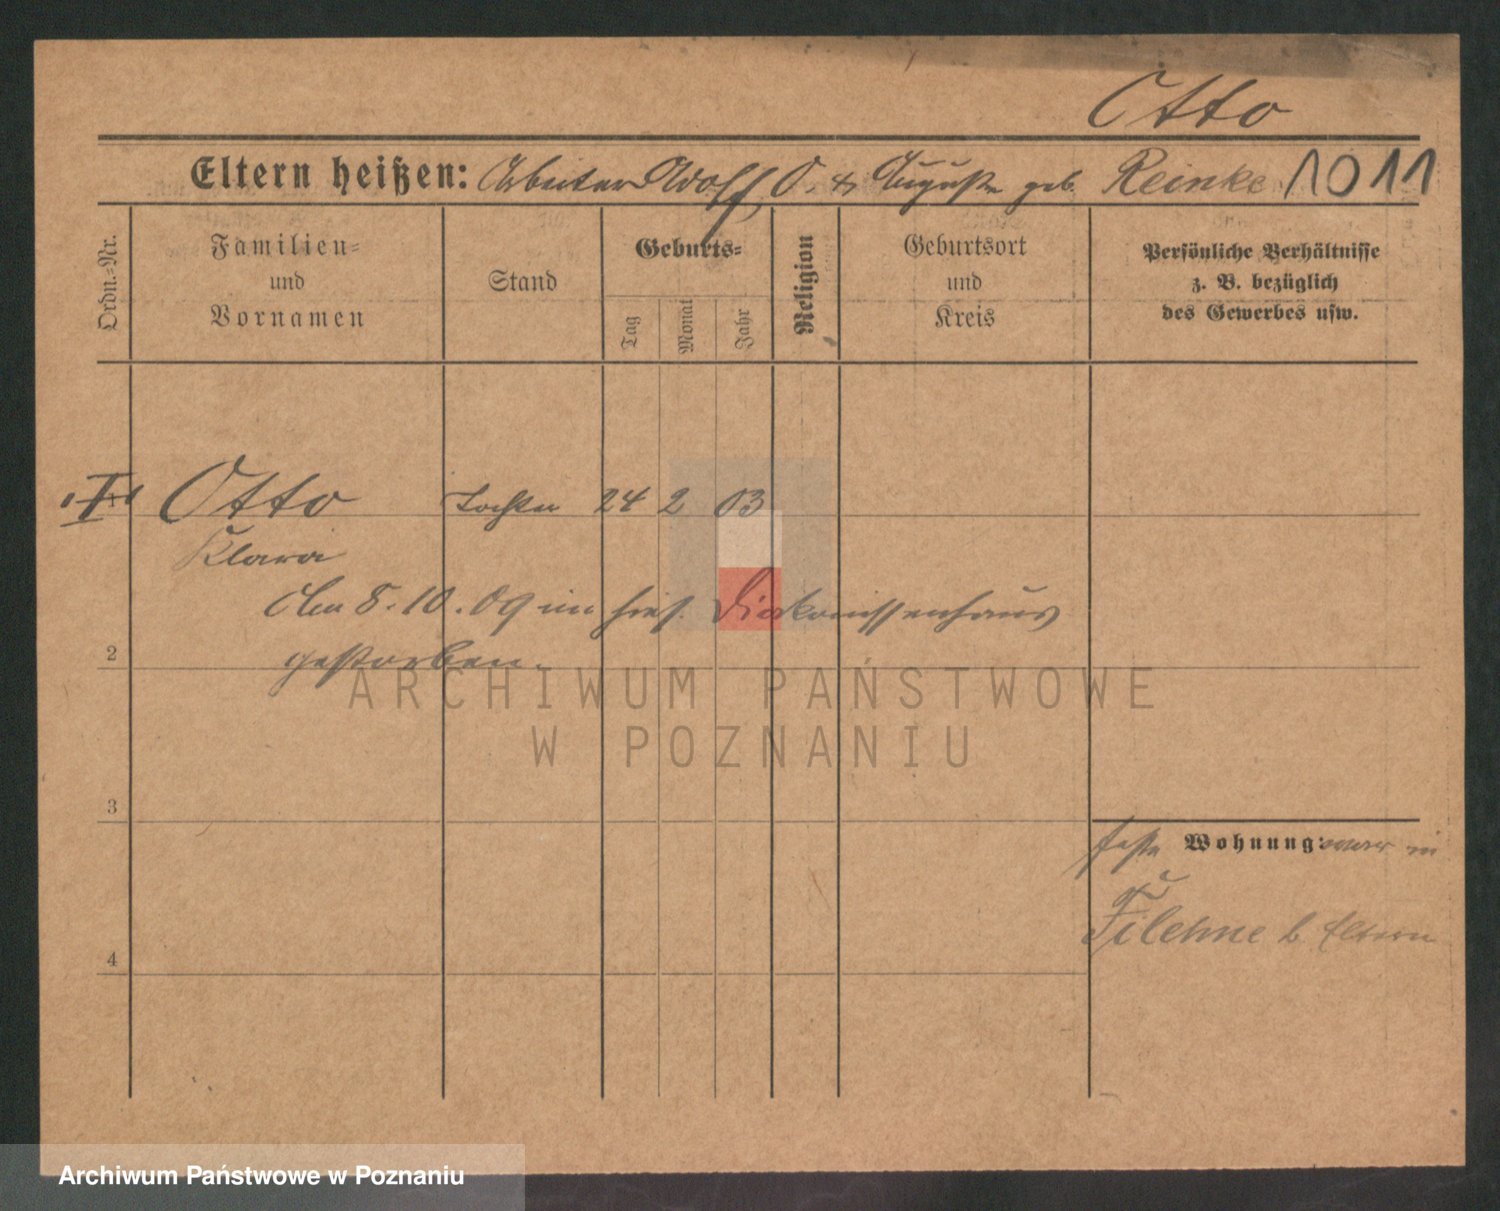 Otto
Eltern heißen: Arbeiter Adolf O. & Auguste geb. Reinke 1011
Ordn.-Nr.
Familien-
und
Vornamen
Stand
Geburts-
Tag
Monat
Jahr
Religion
Geburtsort
und
Kreis
Persönliche Verhältnisse
z. B. bezüglich
des Gewerbes usw.
I Otto Tochter 24 2 03
Klara
Am 8.10.09 im hies. Diakonissenhaus
2
gestorben.
ARCHIWUM PAŃSTWOWE
W POZNANIU
3
feste Wohnung: war in
Filehne b. Eltern
4
Archiwum Państwowe w Poznaniu